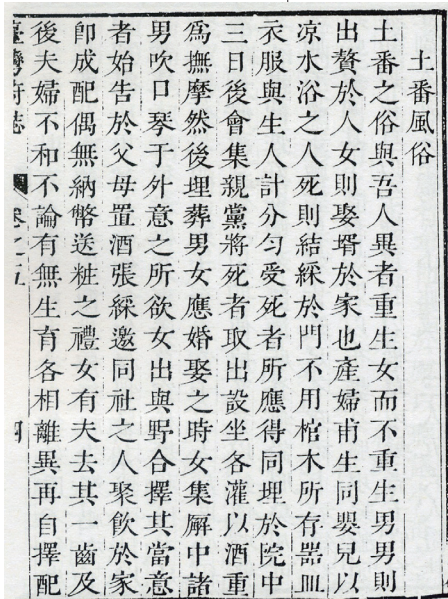 土番風俗
土番之俗與吾人異者重生女而不重生男男則
出贅於人女則娶壻於家也產婦甫生同嬰兒以
凉水浴之人死則結綵於門不用棺木所存器皿
衣服與生人計分勻受死者所應得同埋於院中
三日後會集親黨將死者取出設坐各灌以酒重
爲撫摩然後埋葬男女應婚娶之時女集廨中諸
男吹口琴于外意之所欲女出與野合擇其當意
者始告於父母置酒張綵邀同社之人聚飲於家
卽成配偶無納幣送粧之禮女有夫去其一齒及
後夫婦不和不論有無生育各相離異再自擇配
臺灣府誌 卷之五